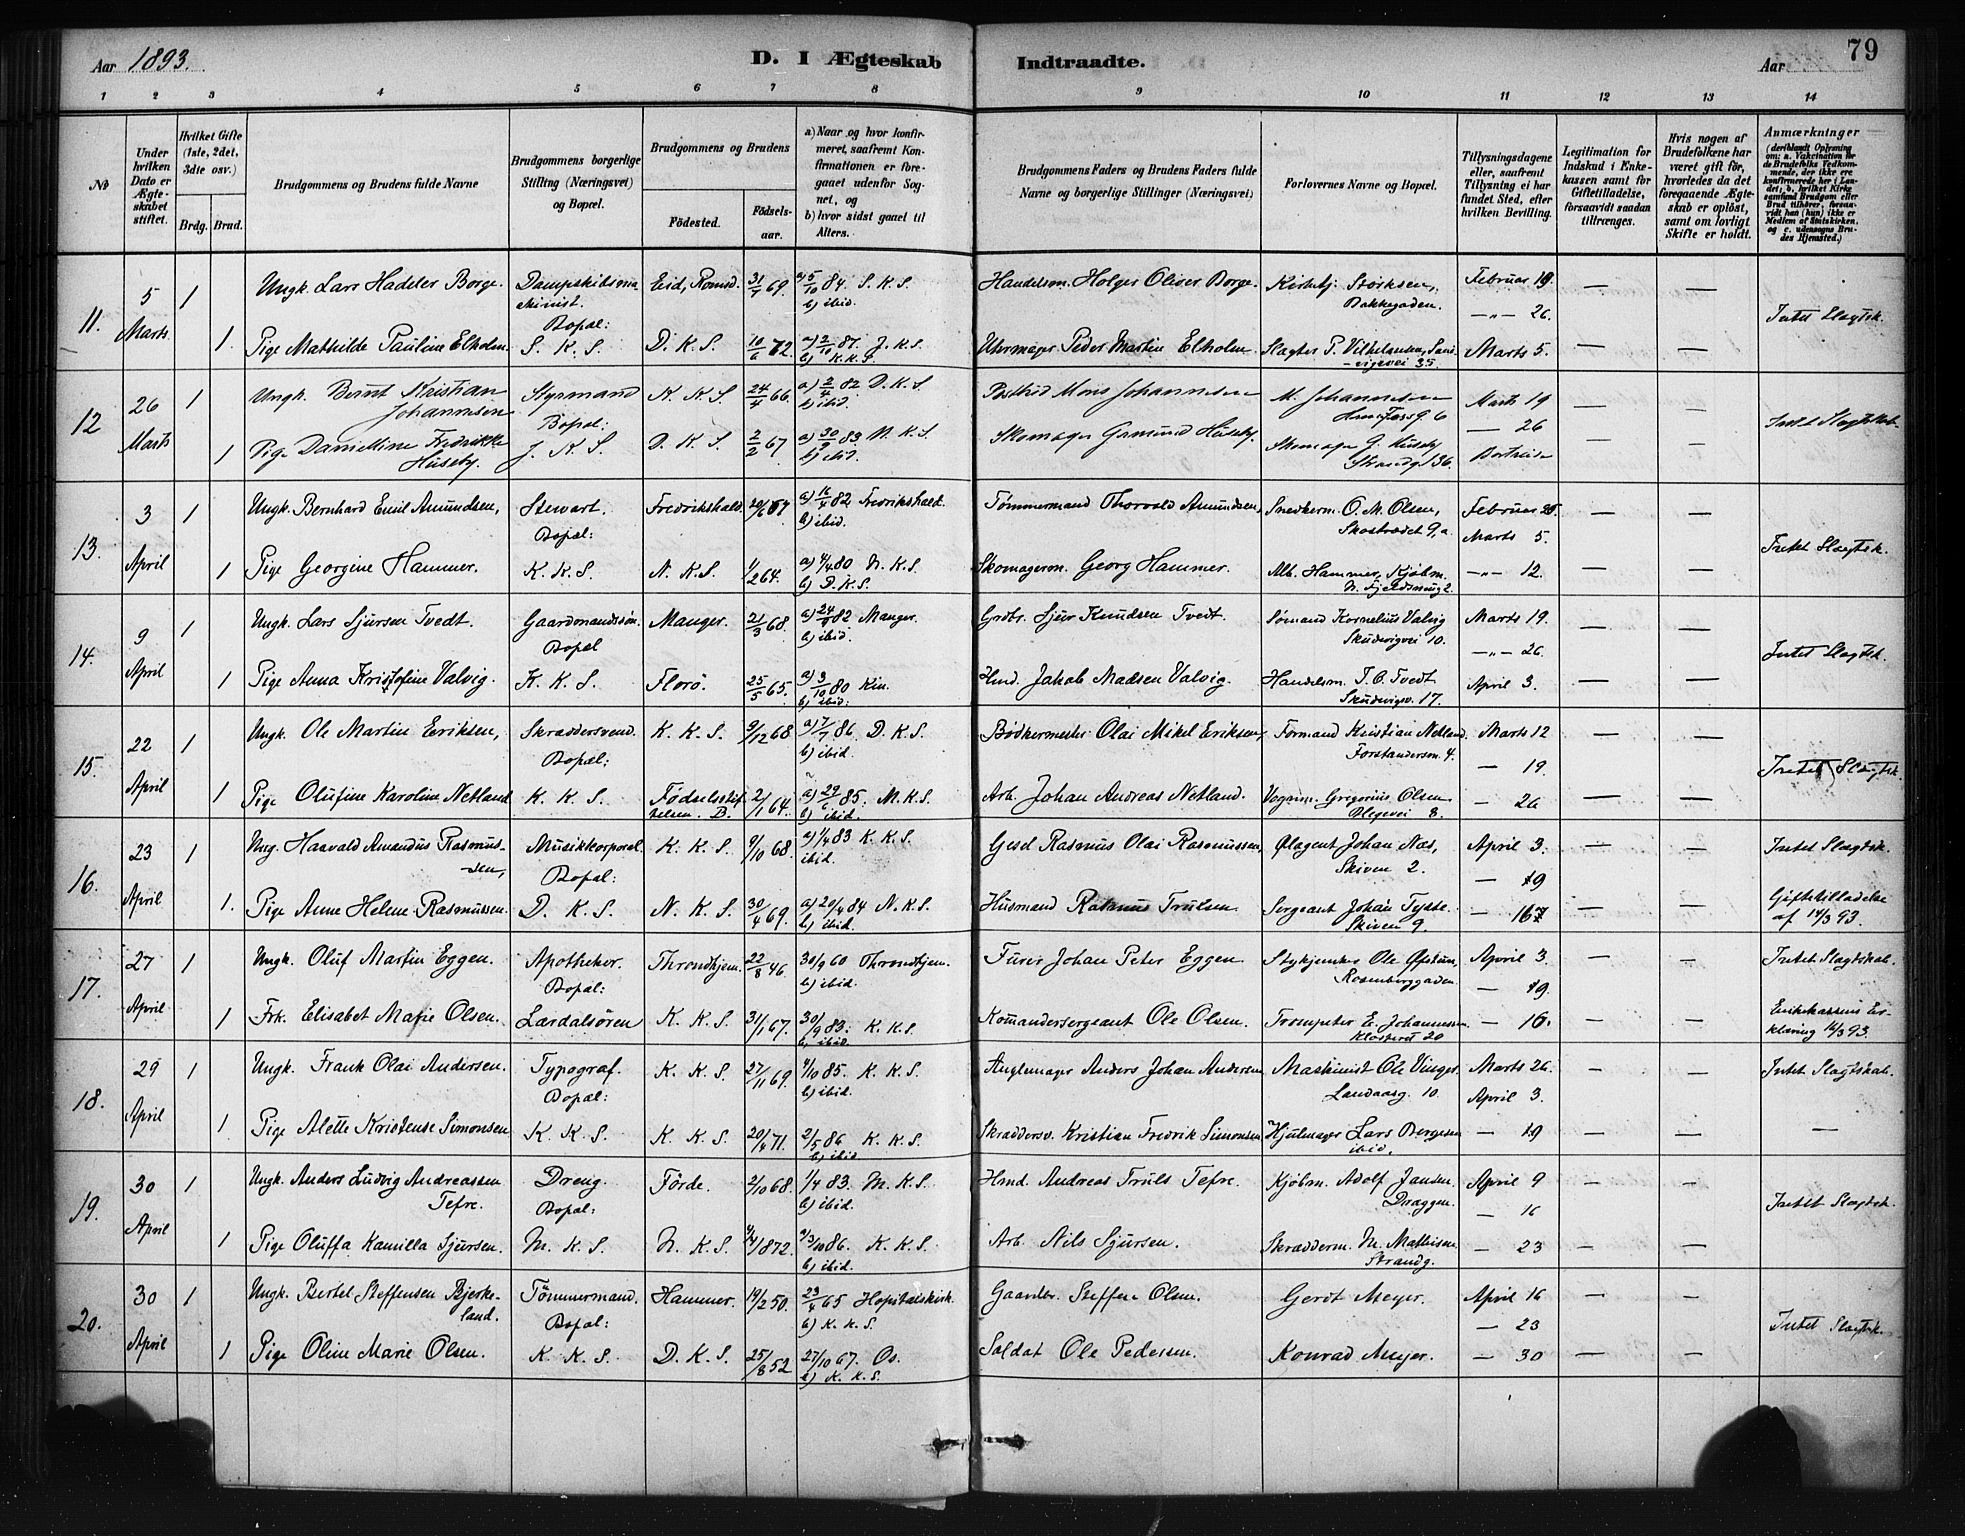 Aar 1893. D. I Ægteskab Indtraadte. Aar 79
1 2 3 4 5 6 7 8 9 10 11 12 13 14
No
Under hvilken Dato er Ægteskabet stiftet.
Hvilket Gifte (1ste, 2det, 3die osv.)
Brdg. Brud.
Brudgommens og Brudens fulde Navne
Brudgommens borgerlige Stilling (Næringsvei) og Bopæl.
Brudgommens og Brudens
Fødested. Fødsels-aar.
a) Naar og hvor konfirmeret, saafremt Konfirmationen er foregaaet udenfor Sognet, og
b) hvor sidst gaaet til Alters.
Brudgommens Faders og Brudens Faders fulde Navne og borgerlige Stillinger (Næringsvei)
Forlovernes Navne og Bopæl.
Tillysningsdagene eller, saafremt Tillysning ei har fundet Sted, efter hvilken Bevilling.
Legitimation for Indskud i Enkekassen samt for Giftetilladelse, forsaavidt saadan tiltrænges.
Hvis nogen af Brudefolkene har været gift før, hvorledes da det foregaaende Ægteskab er opløst, samt om lovligt Skifte er holdt.
Anmærkninger (deriblandt Oplysning om: a. Vakcination for de Brudefolks Vedkommende, der ikke ere konfirmerede her i Landet; b. hvilket Kirkesamfund Brudgom eller Brud tilhører, forsaavidt han (hun) ikke er Medlem af Statskirken, og c. udensogns Brudes Hjemsted.)
11. 5 Marts 1 Ungk. Lars Hadeler Borge. Dampskibsmaskinist. Eid, Romsd. 31/7 69. a) 5/10 84. S. K. S. b) ibid. Handelsm. Holger Oliver Borge. Kirketj. Størksen, Bakkegaden. Februar 19.
Bopæl: —"— 26. Intet Slægtsk.
1. Pige Mathilde Pauline Elholm. S. K. S. D. K. S. 10/6 72. a) 2/10 87. J. K. S. b) K. K. S. Uhrmager Peder Martin Elholm Slagter P. Vilhelmsen, Sandvigsvei 35. Marts 5.
12 26 Marts 1 Ungk. Bernt Kristian Johannesen Styrmand N. K. S. 24/4 66. a) 2/4 82 D. K. S. b) ibid. Mons Johannesen M. Johannesen Marts 19
Bopæl: — 26 Intet Slægtskab.
1 Pige Danielline Fredrikke Huseby. J. K. S. D. K. S. 2/2 67 a) 30/9 83 N. K. S. b) ibid. Skomager Gudmund Huseby. Skomager G. Huseby Strandg. 136.
13. 3 April 1 Ungk. Bernhard Emil Amundsen, Stewart. Fredrikshald. 20/6 67 a) 16/4 82 Fredrikshald. b) ibid. Tømmermand Thorvald Amundsen, Snedkerm. O. M. Olsen, Skostrædet 9, a. Februar 26.
Bopæl: Marts 5. Intet Slægtsk.
1 Pige Georgine Hammer. K. K. S. N. K. S. 1/2 64. a) 4/4 80 N. K. S. b) D. K. S. Skomagerm. Georg Hammer. Alb. Hammer, Kjøbm. N. Fjeldsmug 2. —"— 12.
14. 9 April 1 Ungk. Lars Sjursen Tvedt. Gaardmandssøn. Manger. 21/3 68. a) 24/9 82 Manger. b) ibid. Grdbr. Sjur Knudsen Tvedt. Sømand Kornelius Valvig Skudevigsvei 10. Marts 19.
Bopæl —"— 26. Intet Slægtsk.
1 Pige Anna Kristofine Valvig. K. K. S. Florø. 25/5 65. a) 3/10 80 Kin. b) ibid. Hmd. Jakob Madsen Valvig. Handelsm. T. O. Tvedt Skudevigsv. 17. April 3.
15. 22 April 1 Ungk. Ole Martin Eriksen, Skræddersvend. K. K. S. 9/12 68. a) 7/7 86. D. K. S. b) ibid. Bødkermester Olai Mikel Eriksen, Formand Kristian Netland. Forstandersm. 4. Marts 12
Bopæl: — 19. Intet Slægtsk.
1 Pige Olufine Karoline Netland K. K. S. Fødselsstiftelsen. B. 2/1 64. a) 29/6 85. M. K. S. b) ibid. Arb. Johan Andreas Netland. Vognm. Gregorius Olsen Blegevei 8. — 26
16. 23 April 1 Ung. Haavald Amandus Rasmussen, Musikkorporal. K. K. S. 9/10 68. a) 1/4 83 K. K. S. ibid. Gesel Rasmus Olai Rasmussen, Ølagent Johan Næs, Skiven 2. April 3. Intet Slægtsk.
Bopæl: — 9
1. Pige Anne Helene Rasmussen. D. K. S. N. K. S. 30/4 69. a) 20/4 84 N. K. S. b) ibid. Husmand Rasmus Trulsen Sergeant Johan Tysse Skiven 9. — 16 Giftetilladelse af 14/3 93.
17. 27 April 1 Ungk. Oluf Martin Eggen. Apotheker. Throndhjem. 22/8 46. 30/9 60 Throndhjem. b) ibid. Furer Johan Peter Eggen Stykjunker Ole Øfstun, Rosenberggaden. April 3. Intet Slægtskab.
Bopæl: — 9.
1 Frk. Elisabet Marie Olsen. Lærdalsören K. K. S. 31/1 67. 30/9 83. K. K. S. b) ibid. Kommandersergeant Ole Olsen. Trompeter E. Johannessen Klosteret 20 — 16. Enkekassens Erklæring 14/3 93.
18. 29 April 1 Ungk. Frank Olai Andersen. Typograf. K. K. S. 27/11 69. 4/10 85. K. K. S. b) ibid. Anders Johan Andersen Maskinist Ole Vinger. Landaasg. 10. Marts 26. Intet Slægtskab.
Bopæl: April 3.
1 Pige Alette Kristense Simonsen K. K. S. K. K. S. 20/4 71. 2/5 86 K. K. S. b) ibid. Skræddersv. Kristian Fredrik Simonsen Hjulmager Lars Bergesen ibid. — 9 —
19. 30 April 1 Ungk. Anders Ludvig Andreassen Tefre. Dreng. Förde. 2/10 68. 1/4 83. M. K. S. b) ibid. Hmd. Andreas Truls Tefre. Kjøbm. Adolf Jansen. Dræggen. April 9
Bopæl: — 16 Intet Slægtsk.
1 Pige Oluffa Kamilla Sjursen. M. K. S. N. K. S. 4/4 1872. a) 3/10 86. K. K. S. b) ibid. Arb. Nils Sjursen. Skrædderm. M. Mathisen Strandg. — 23
20. 30 April 1 Ungk. Bertel Steffensen Bjerkeland. Tømmermand. Hammer. 19/2 50. 23/4 65 Hospitalskirk. b) K. K. S. Gaardbr. Steffen Olsen. Gerdt Meyer. April 16
Bopæl: — 23 Intet Slægtsk.
1 Pige Oline Marie Olsen. K. K. S. D. K. S. 25/8 52 27/10 67. Os. b) K. K. S. Soldat Ole Pedersen. Konrad Meyer. — 30